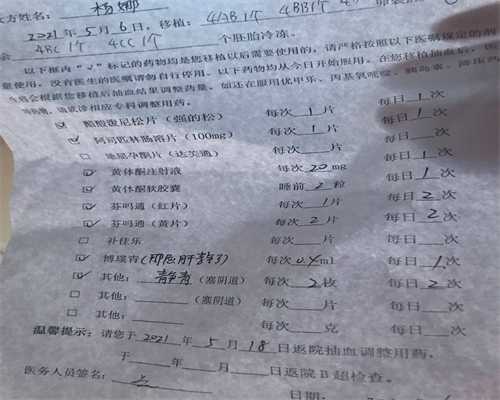 方姓名: 杨娜
2021年5月6日, 移植: 4AB1个 4BB1个
4BC1个 4CC1个 个胚胎冷冻。
以下框内“√”标记的药物均是您移植以后需要使用的, 请严格按照以下医嘱规定的剂
量使用, 没有医生的医嘱请勿自行停用。以下药物均从今日开始服用。在您移植抽血后, 医
会根据您移植后抽血结果调整药量。如还在服用优甲乐、丙基氧嘧啶、胰岛素、降压药
请就诊相应专科调整用药。
☑ 醋酸泼尼松片(强的松) 每次1片 每日1次
☑ 阿司匹林肠溶片(100mg) 每次1片 每日1次
□ 地屈孕酮片(达芙通) 每次 片 每日 次
☑ 黄体酮注射液 每次20mg 每日1次
☑ 黄体酮软胶囊 睡前2粒 每日 次
☑ 芬吗通(红片) 每次1片 每日2次
☑ 芬吗通(黄片) 每次2片 每日2次
□ 补佳乐 每次 片 每日 次
☑ 博璞青 每次0.4ml 每日1次
☑ 其他: (塞阴道) 每次2枚 每日2次
□ 其他: (塞阴道) 每次 片 每日 次
□ 其他: 每次 克 每日 次
温馨提示: 请您于2021年5月18日返院抽血调整用药。
于 年 月 日返院B超检查。
医务人员签名:
日期: